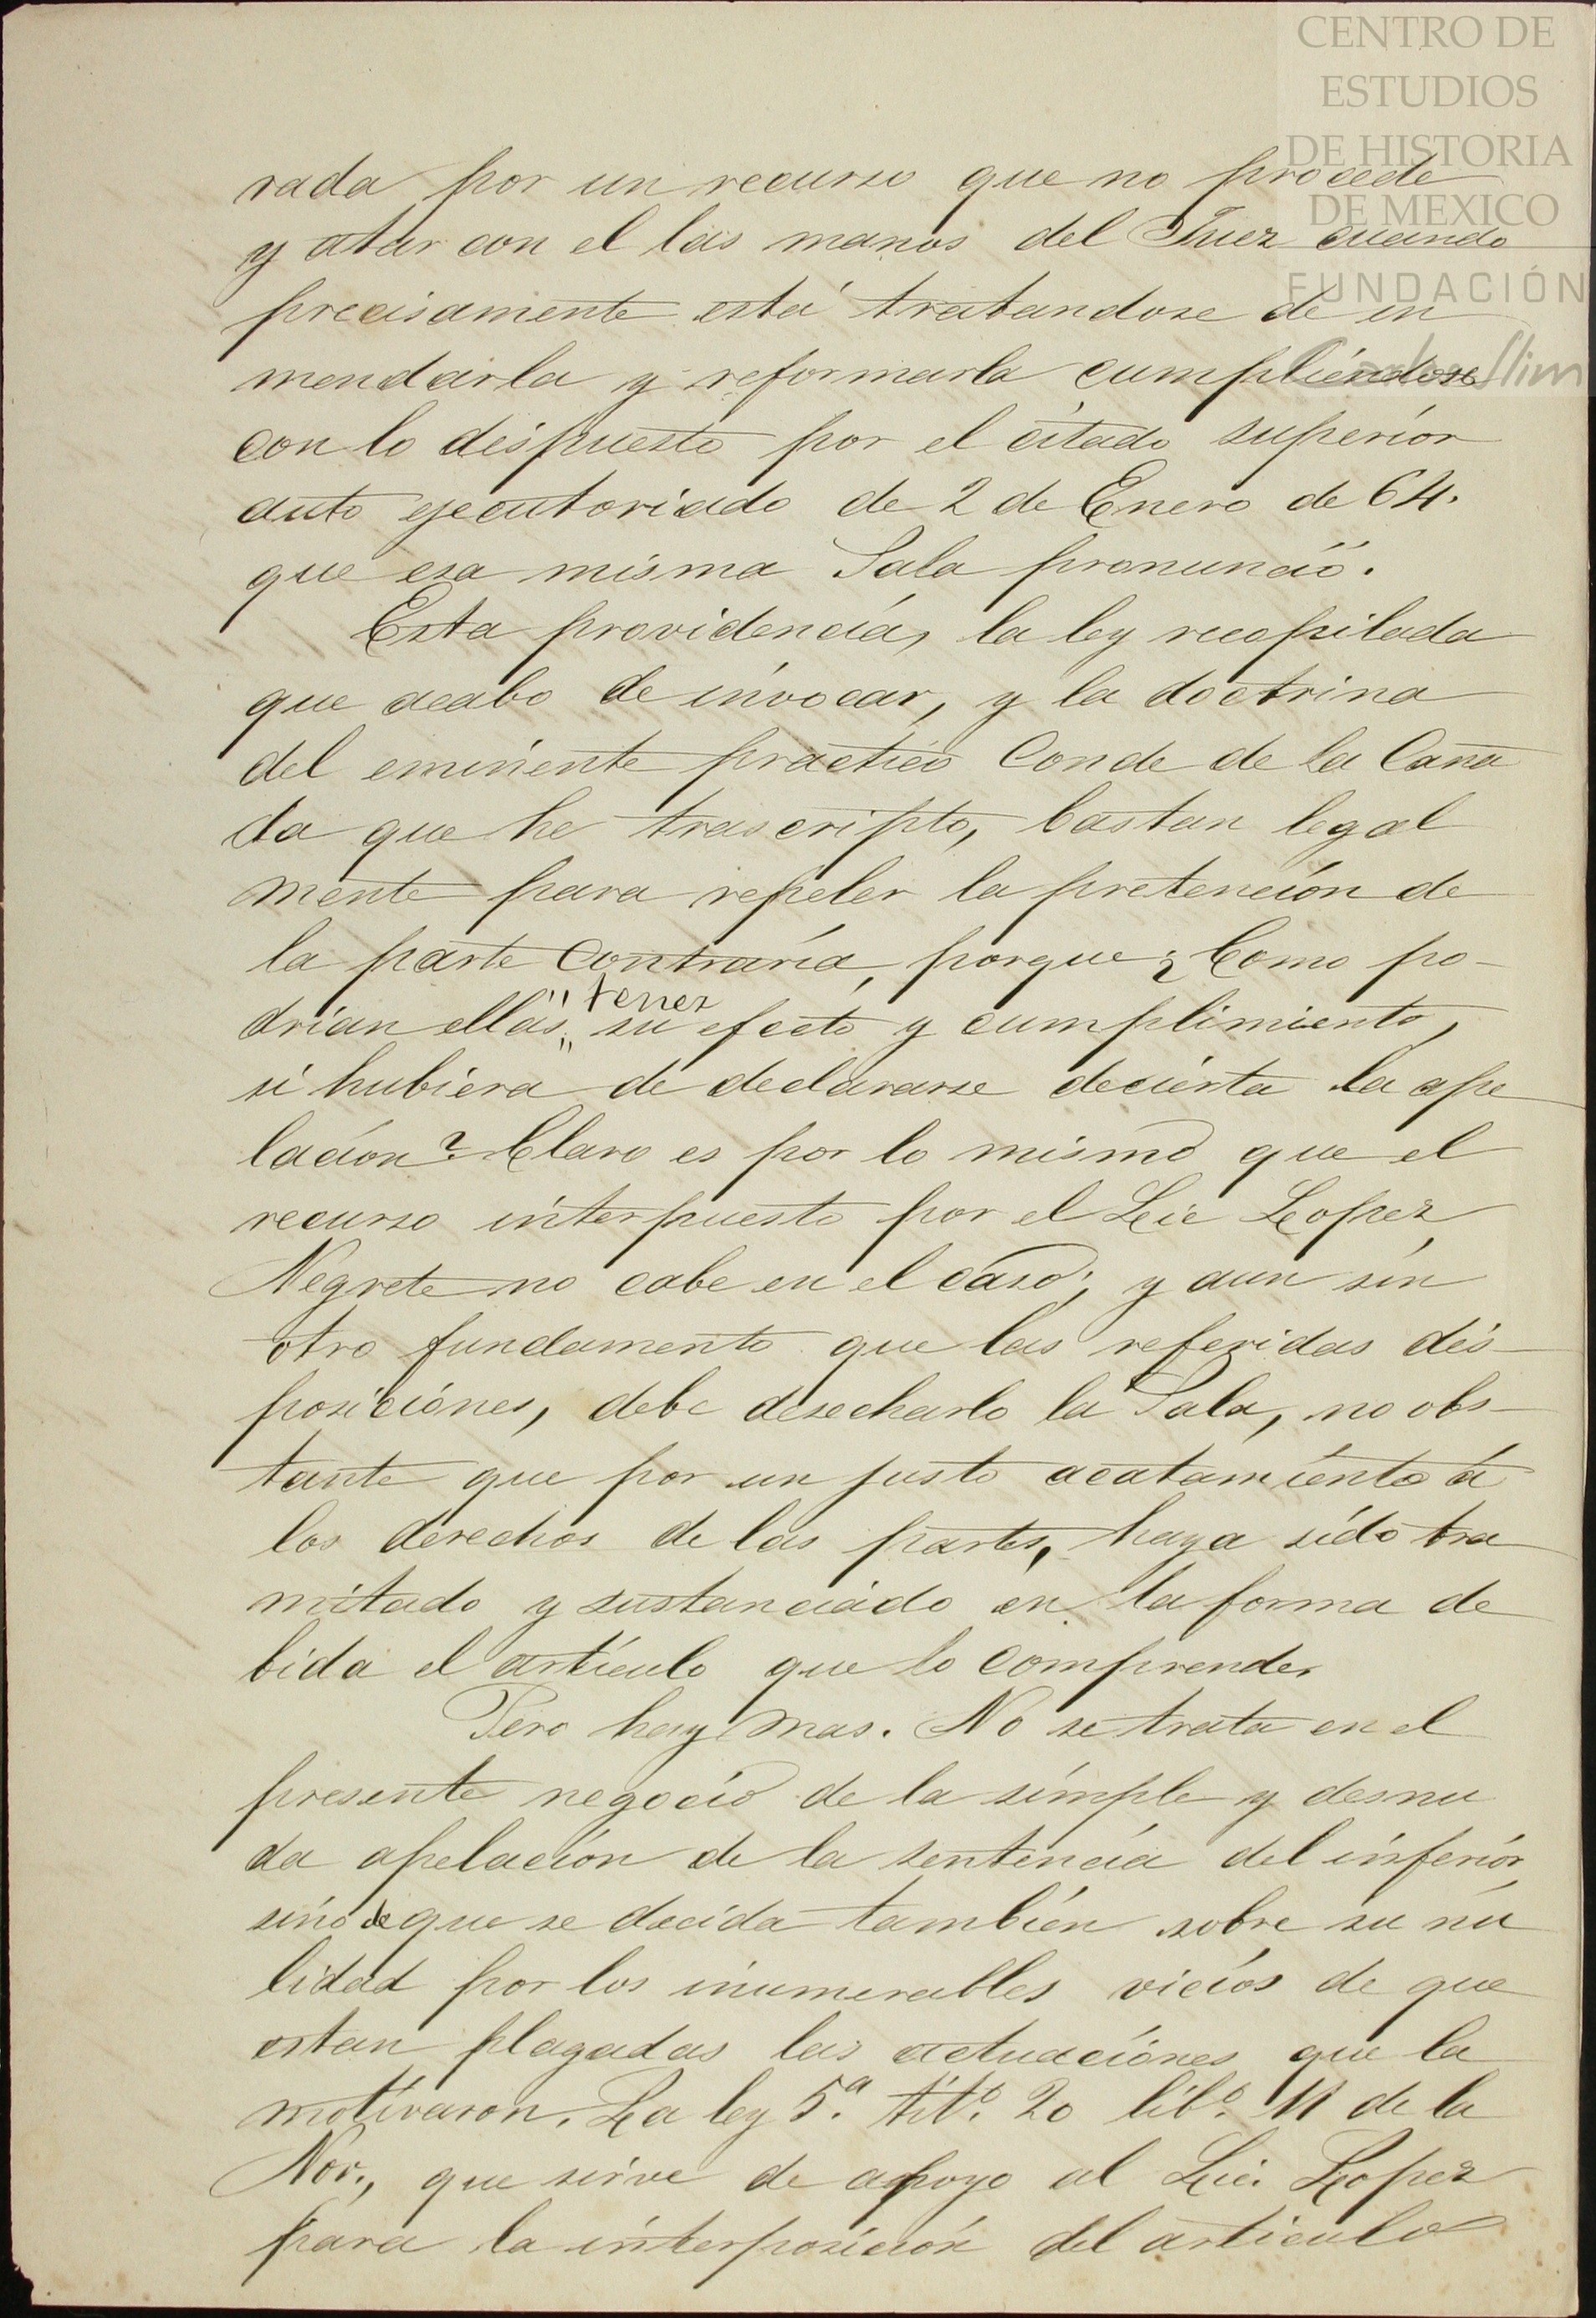 CENTRO DE
ESTUDIOS
DE HISTORIA
DE MEXICO
FUNDACIÓN
Carlos Slim
rada por un recurso que no procede
y atar con el las manos del Juez cuando
precisamente está tratandose de en
mendarla y reformarla cumpliéndose
con lo dispuesto por el citado superior
auto ejecutoriado de 2 de Enero de 64.
que esa misma Sala pronunció.
Esta providencia, la ley recopilada
que acabo de invocar, y la doctrina
del eminente práctico Conde de la Caña
da que he trascripto, bastan legal
mente para repeler la pretención de
la parte contraria, porque ¿Como po-
drian ellas "tener" su efecto y cumplimiento,
si hubiera de declararse decierta la ape
lación? Claro es por lo mismo que el
recurso interpuesto por el Lic Lopez
Negrete no cabe en el caso; y aun sin
otro fundamento que las referidas dis-
posiciónes, debe desecharlo la Sala, no obs-
tante que por un justo acatamiento á
los derechos de las partes, haya sido tra
mitado y sustanciado en la forma de
bida el artículo que lo comprende.
Pero hay mas. No se trata en el
presente negocio de la simple y desnu
da apelación de la sentencia del inferiór,
sino de que se decida también sobre su nu
lidad por los inumerables vicios de que
estan plagadas las actuaciónes que la
motivaron. La ley 5.ª tit.º 20 lib.º 11 de la
Nov., que sirve de apoyo al Lic. Lopez
para la interposición del artículo